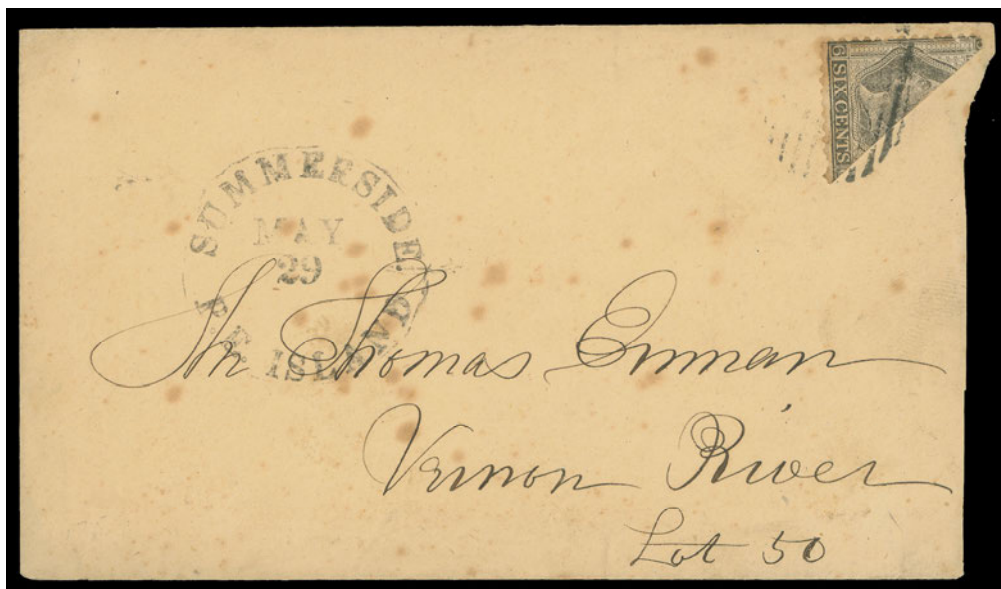 6 SIX CENTS
SUMMERSIDE
MAY
29
P.E. ISLAND
Mr Thomas Enman
Vernon River
Lot 50